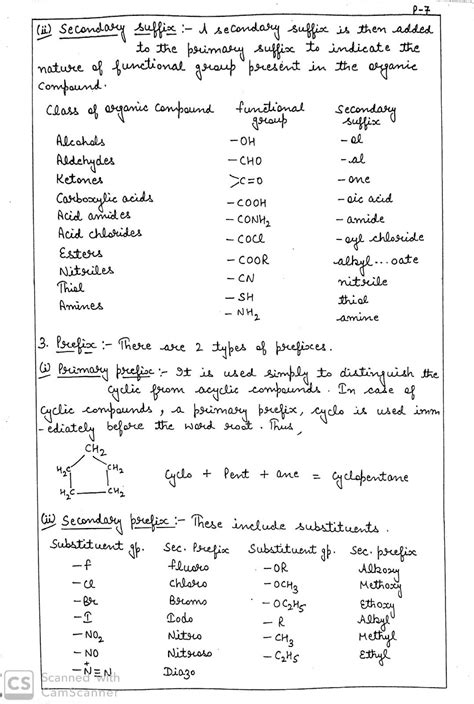 P-7
(ii) Secondary suffix :- A secondary suffix is then added
to the primary suffix to indicate the
nature of functional group present in the organic
compound.
Class of organic compound functional group Secondary suffix
Alcohols -OH -ol
Aldehydes -CHO -al
Ketones >C=O -one
Carboxylic acids -COOH -oic acid
Acid amides -CONH2 -amide
Acid chlorides -COCl -oyl chloride
Esters -COOR alkyl...oate
Nitriles -CN nitrile
Thiol -SH thiol
Amines -NH2 amine
3. Prefix :- There are 2 types of prefixes.
(i) Primary prefix :- It is used simply to distinguish the
cyclic from acyclic compounds. In case of
cyclic compounds, a primary prefix, cyclo is used imm
-ediately before the word root. Thus,
CH2
H2C CH2
H2C CH2
Cyclo + Pent + ane = Cyclopentane
(ii) Secondary prefix :- These include substituents.
Substituent gp. Sec. Prefix Substituent gp. Sec. prefix
-F fluoro -OR Alkoxy
-Cl Chloro -OCH3 Methoxy
-Br Bromo -OC2H5 Ethoxy
-I Iodo -R Alkyl
-NO2 Nitro -CH3 Methyl
-NO Nitroso -C2H5 Ethyl
-N+≡N Diazo
CS Scanned with
CamScanner